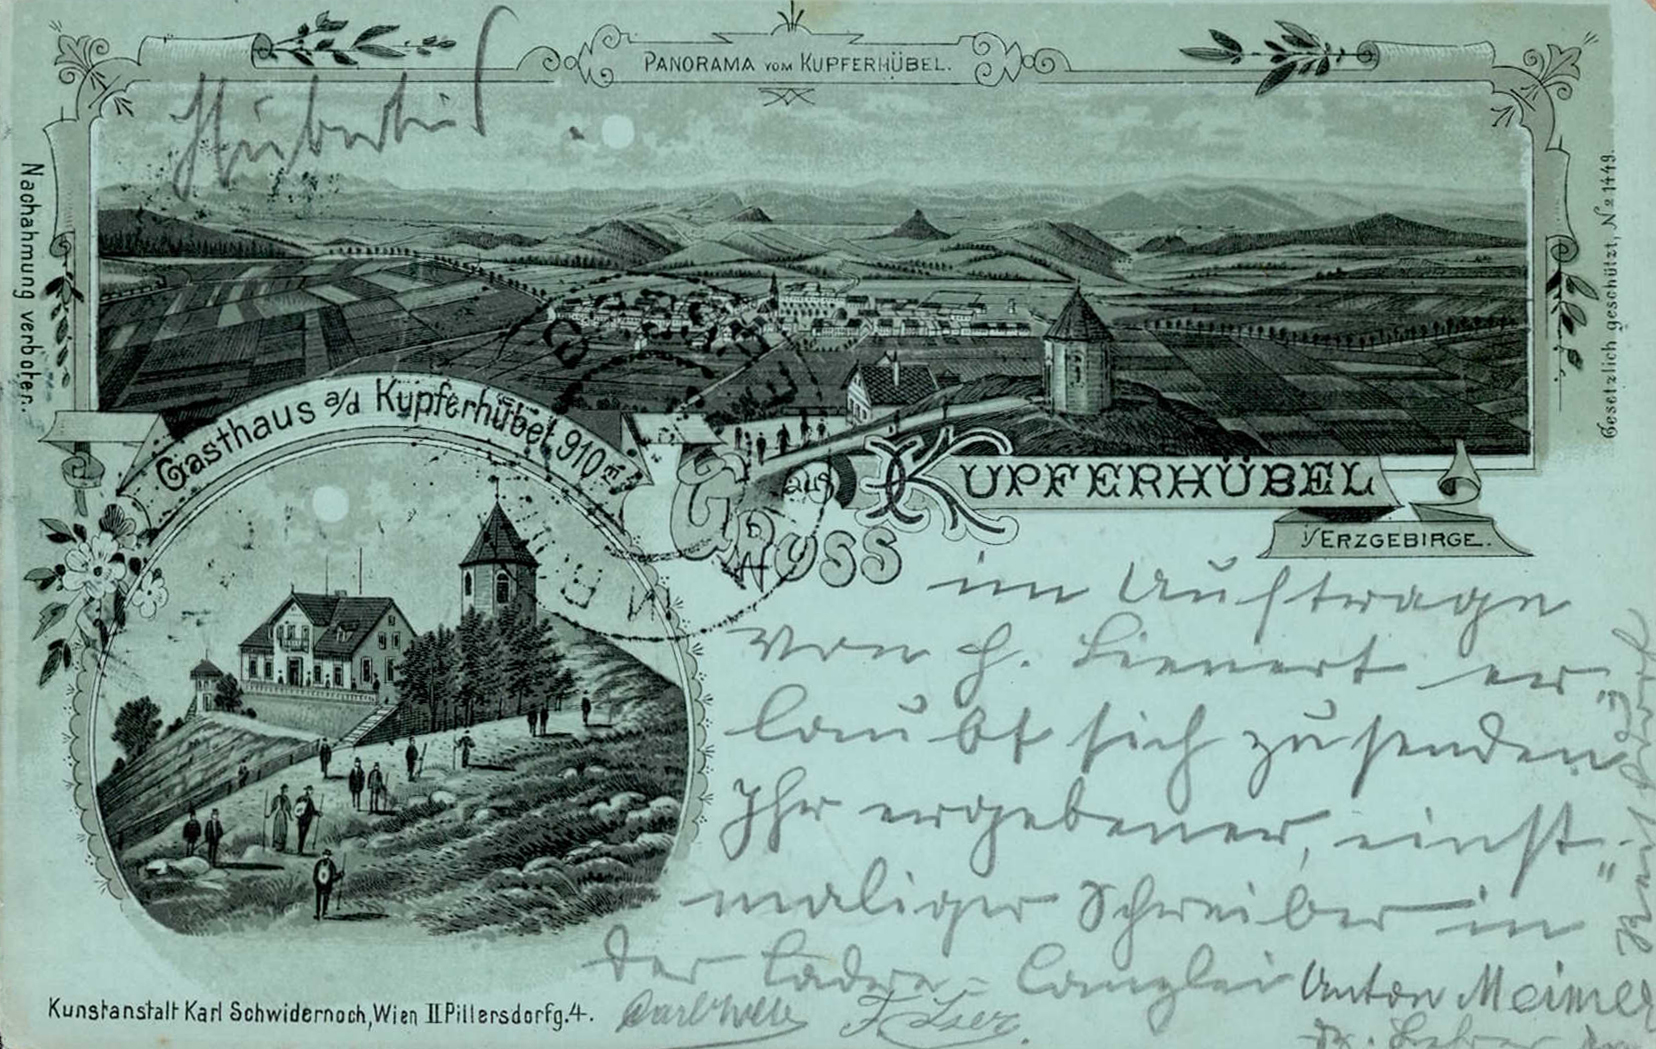 PANORAMA VOM KUPFERHÜBEL.
Nachahmung verboten.
Gesetzlich geschützt, No 1449.
Gasthaus a/d Kupferhübel 910 m
GRUSS aus KUPFERHÜBEL
i/ERZGEBIRGE.
im Auftrage
von H. Lienert er-
laubt sich zu senden
Ihr ergebener, einst-
maliger Schreiber in
der Canzlei
Anton
Kunstanstalt Karl Schwidernoch, Wien II Pillersdorfg. 4.